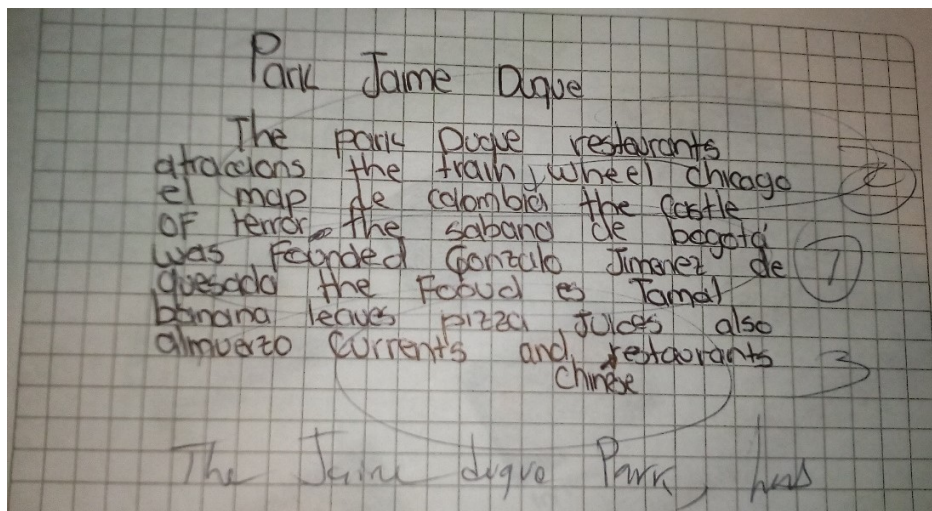 Park Jaime Duque
The park Duque restaurants
atraccions the train, wheel chicago
el map de colombia the castle
OF terror. the sabana de bogotá
was Founded Gonzalo Jimenez de
quesada the Fooud es Tamal
banana leaves pizza, Juices also
almuerzo currents and restaurants
chinese
2
1
3
The Jaime duque Park, has